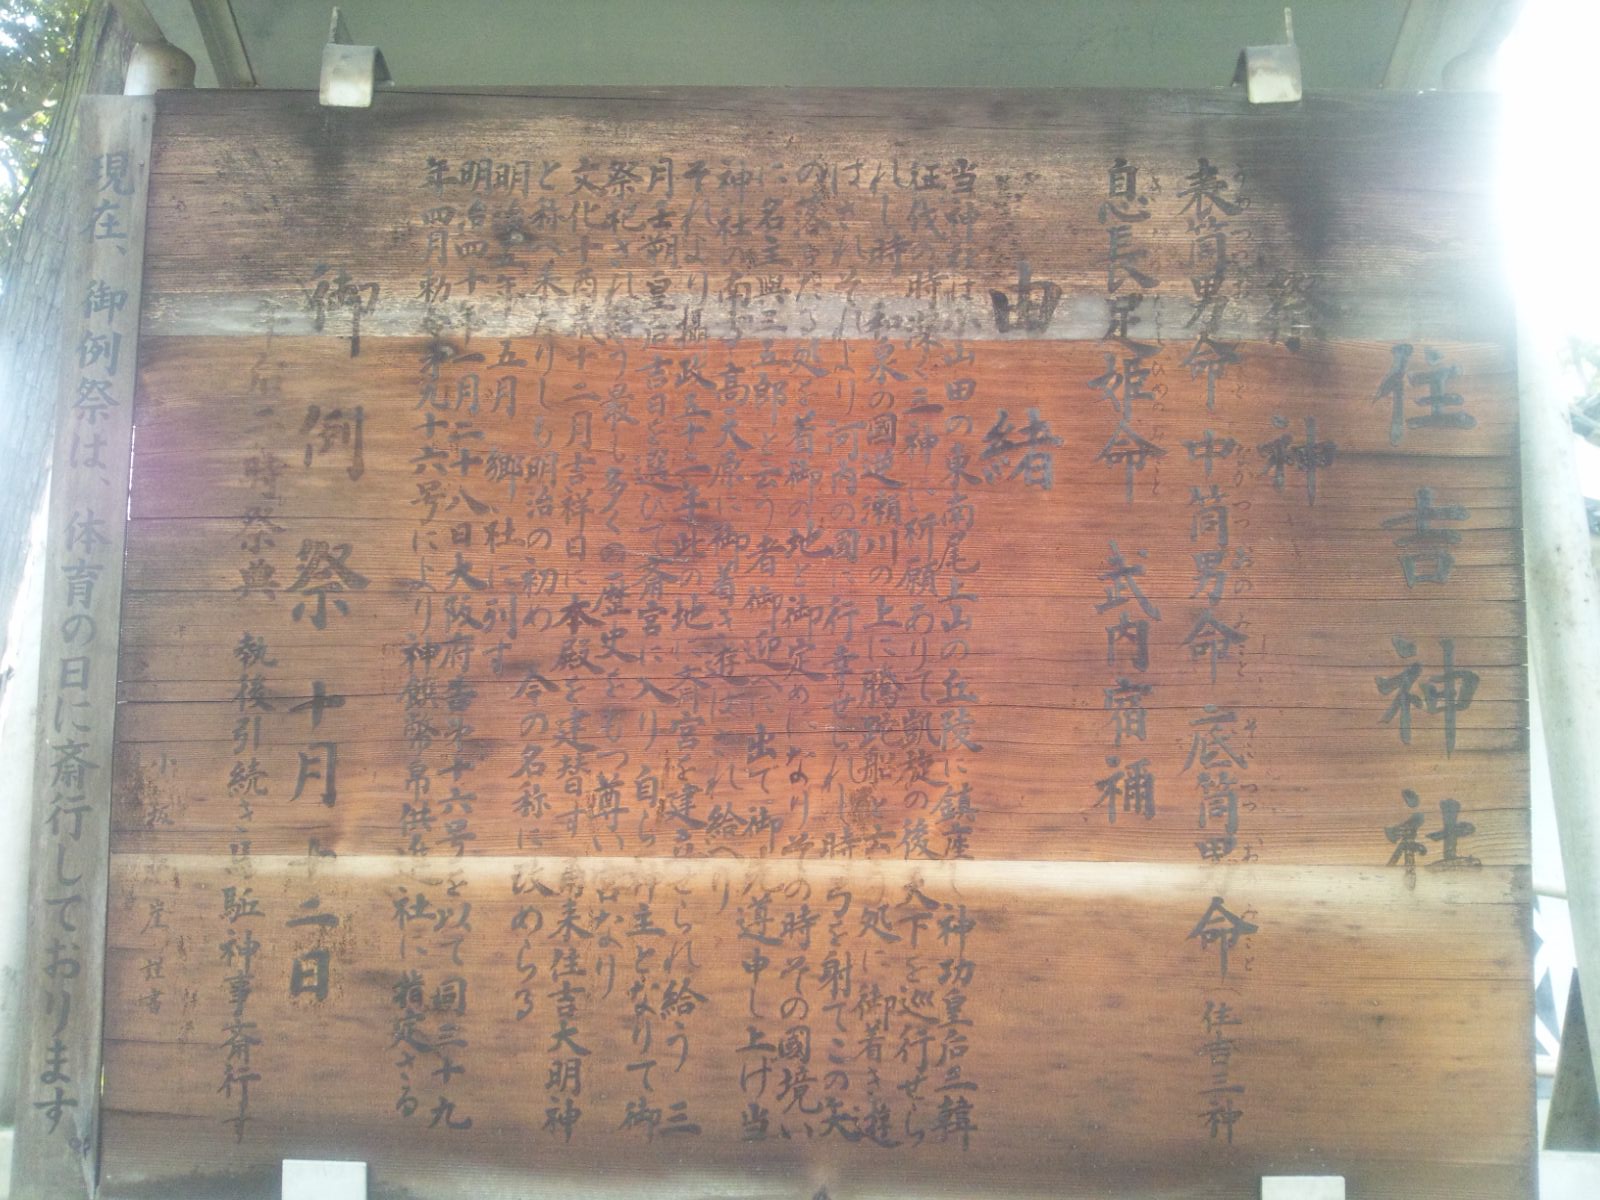 住吉神社
祭神
表筒男命 中筒男命 底筒男命 住吉三神
息長足姫命 武内宿禰
由緒
当神社は小山田の東南尾上山の丘陵に鎮座し神功皇后三韓
征伐の時深く三神に祈願ありて凱旋の後天下を巡行せら
れし時 和泉の國逆瀬川の上に騰蛇船と云う処に御着き遊
はされそれより河内の國に行幸せられし時弓を射てこの矢
の落きたる処を着御の地と御定めになりその時その國境い
に名主與三五郎と云う者御迎へに出て御先導申し上げ当
神社の南方高天原に御着き遊はされ給へり
それより攝政五十三年此の地に斎宮を建立せられ給う 三
月壬朔 皇后吉日を選びて斎宮に入り 自ら神主となりて御
祭祀され給う最も多くの歴史をもつ尊い宮なり
文化十丙戌十二月吉祥日に本殿を建替す 爾来住吉大明神
と称へ来たりしも明治の初め 今の名称に改めらる
明治五年五月 郷社に列す
明治四十年一月二十八日大阪府告第十六号を以て同三十九
年四月勅令第九十六号により神饌幣帛供進社に指定さる
御例祭 十月十二日
午后二時祭典 執後引続き馬駈神事斎行す
謹書
現在、御例祭は、体育の日に斎行しております。